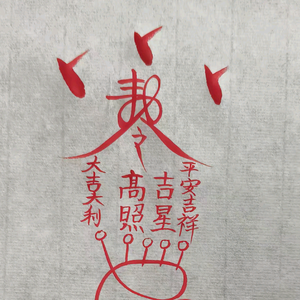 敕令
平安吉祥
吉星
高照
大吉大利